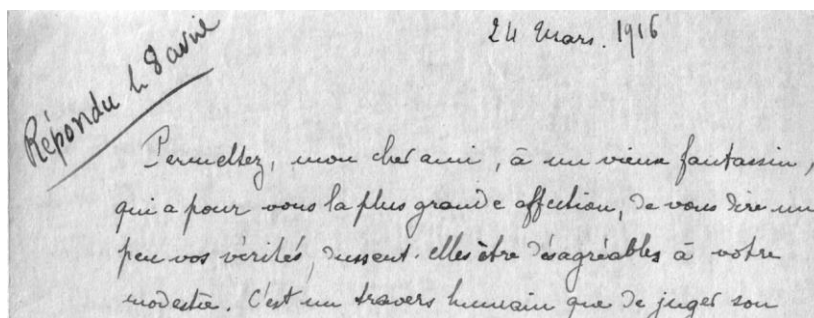 24 Mars. 1916
Répondu le 8 avril
Permettez, mon cher ami, à un vieux fantassin,
qui a pour vous la plus grande affection, de vous dire un
peu vos vérités, dussent-elles être désagréables à votre
modestie. C'est un travers humain que de juger son